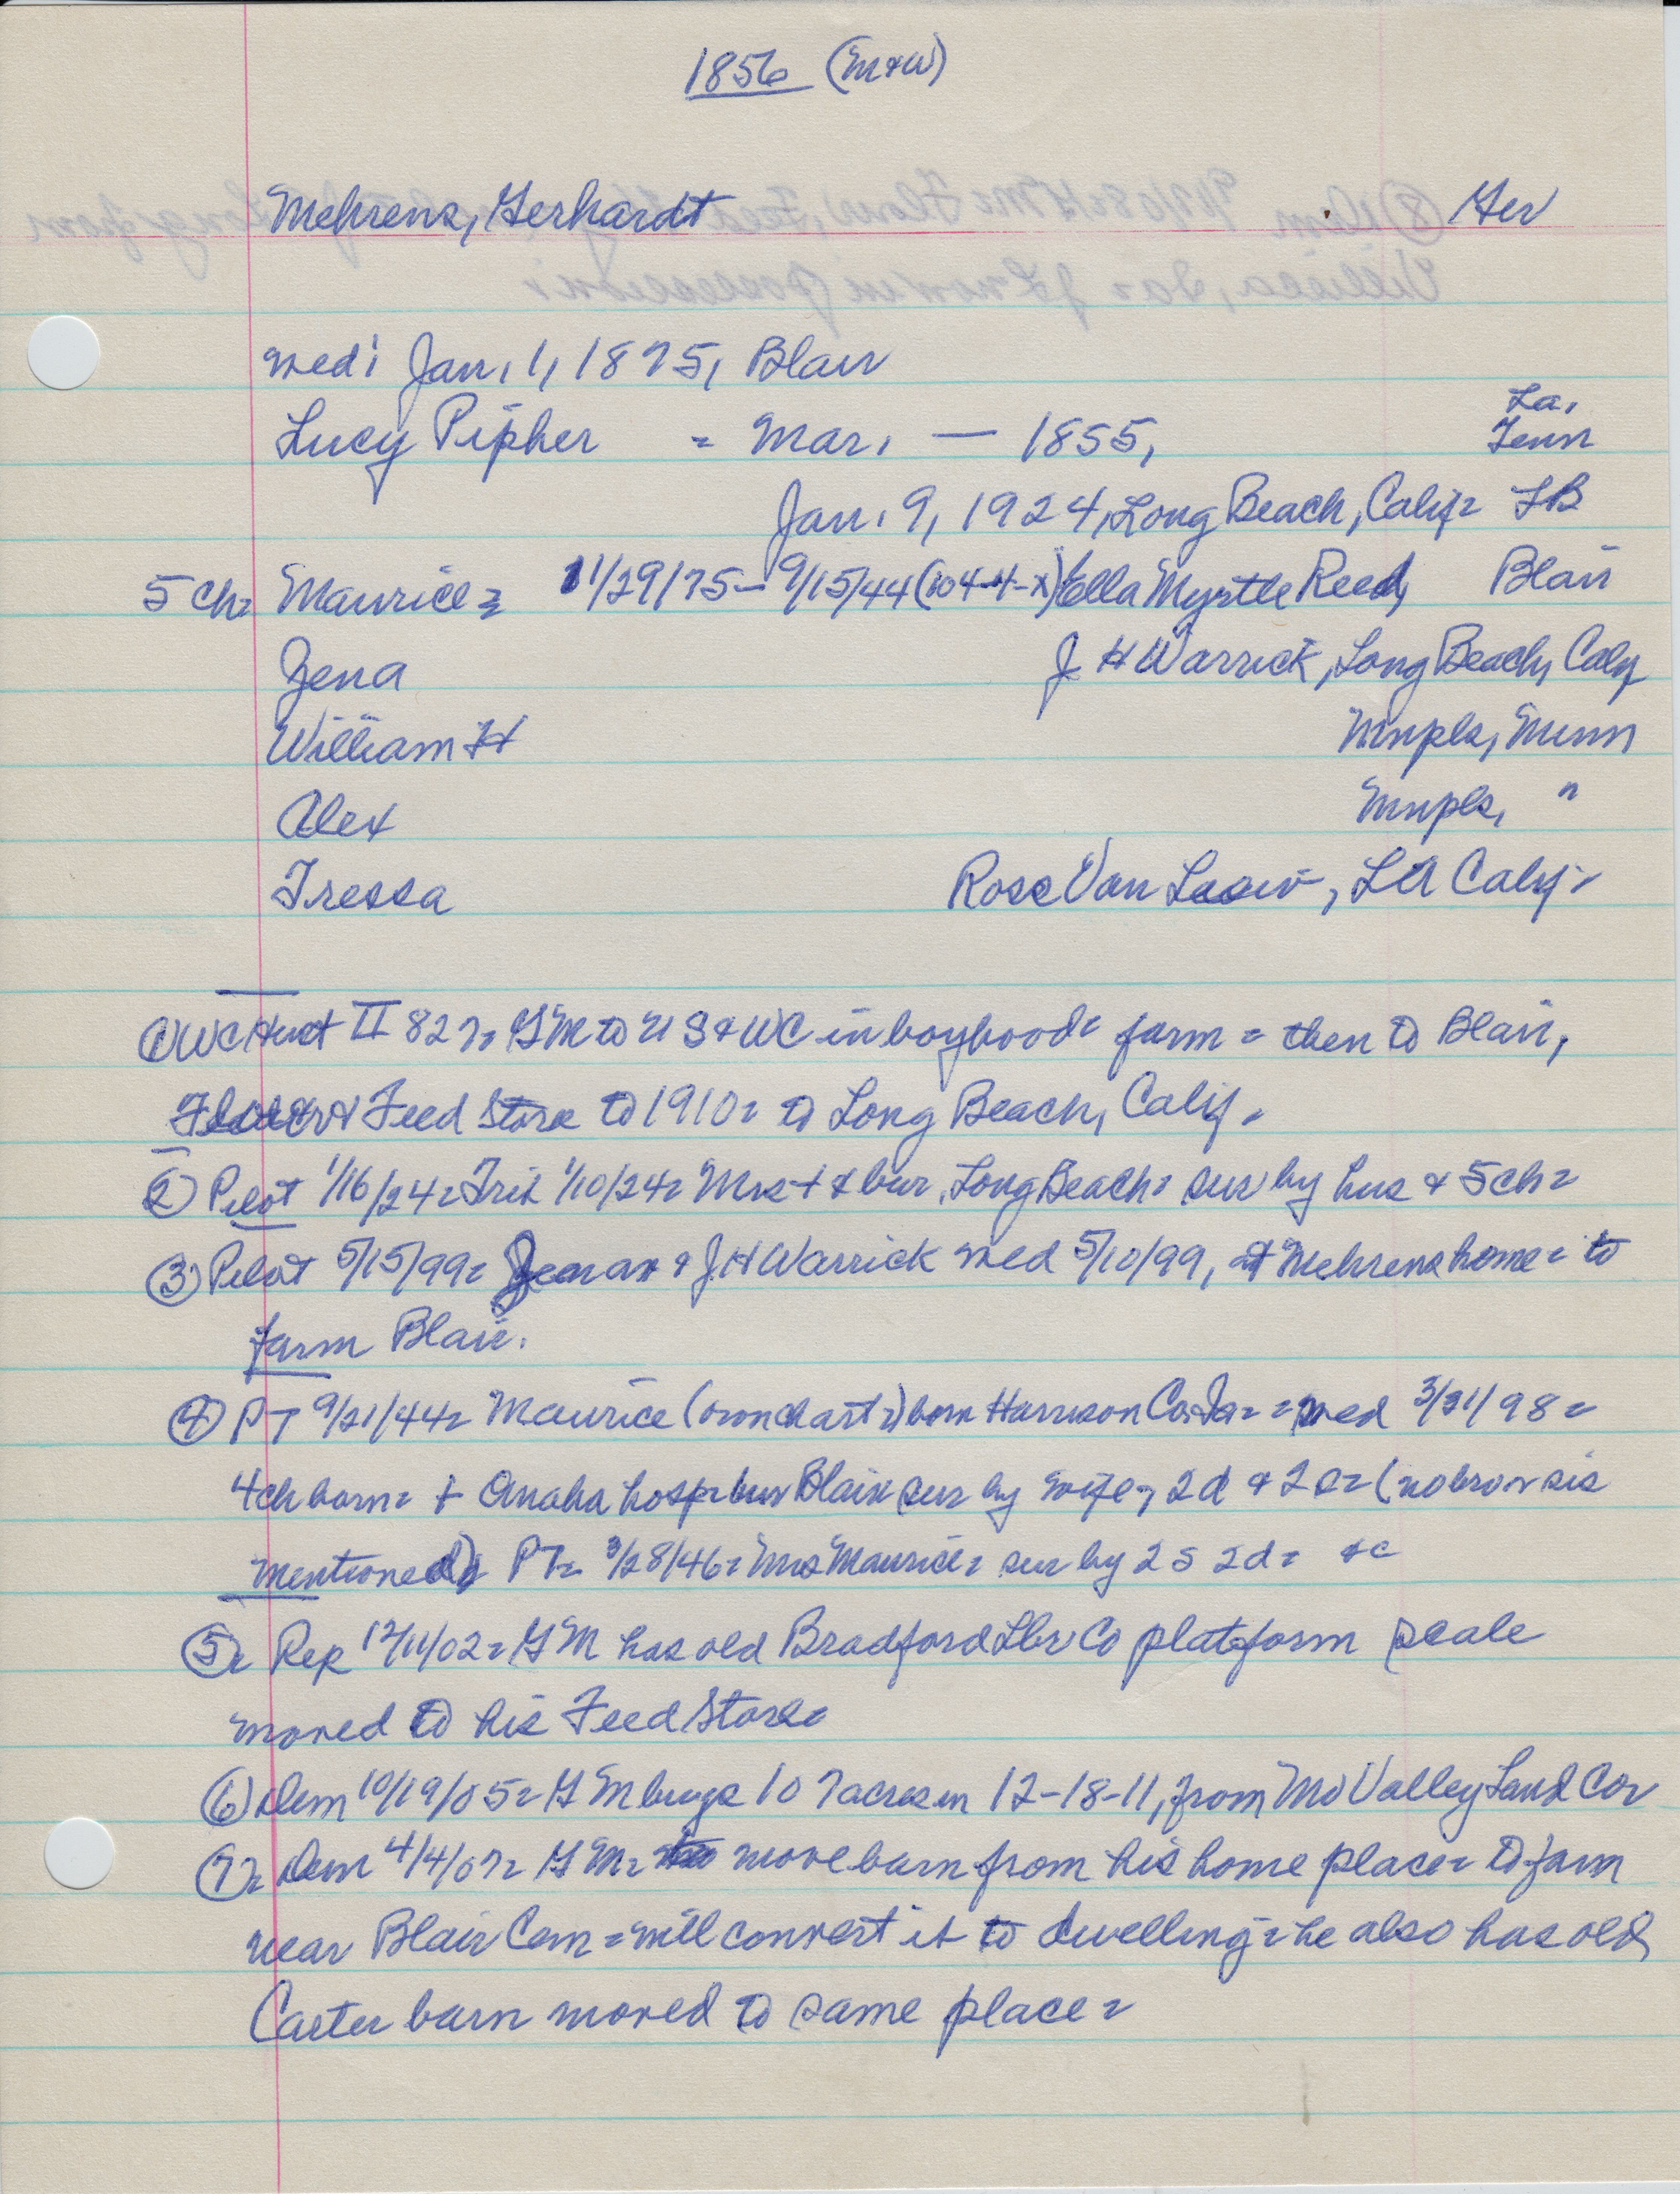 1856 (M+W)
Mehrens, Gerhardt Ger
med: Jan. 1, 1875, Blair
La.
Lucy Pipher = Mar. — 1855, Tenn
Jan. 9, 1924, Long Beach, Calif= LB
5 ch= Maurice= 11/29/75–9/15/44 (104-4-x) Ella Myrtle Reed, Blair
Zena J H Warrick, Long Beach, Calif
William H Mnpls, Minn
Alex Mnpls, "
Tressa Rose Van, LA Calif=
① WC Hist II 827= GM to US & WC in boyhood= farm = then to Blair,
& Feed Store to 1910= to Long Beach, Calif.
② Pilot 1/16/24= Trib 1/10/24= Mrs + & bur. Long Beach= sur by hus & 5 ch=
③ Pilot 5/15/99= & J H Warrick med 5/10/99, at Mehrens home= to
farm Blair.
④ PT 9/21/44= Maurice (own chart=) born Harrison Co. Ia= = med 3/31/98=
4 ch born= + Omaha hosp= bur Blair sur by wife, 2d & 2s= (no bro or sis
mentioned) PT= 3/28/46= Mrs Maurice= sur by 2s 2d= &c
⑤= Rep 12/11/02= GM has old Bradford Lbr Co platform scale
moved to his Feed Store=
⑥ Dem 10/19/05= GM buys 107 acres in 12-18-11, from Mo Valley Land Co=
⑦= Dem 4/4/07= GM= move barn from his home place= to farm
near Blair Cem = will convert it to dwelling= he also has old
Carter barn moved to same place=